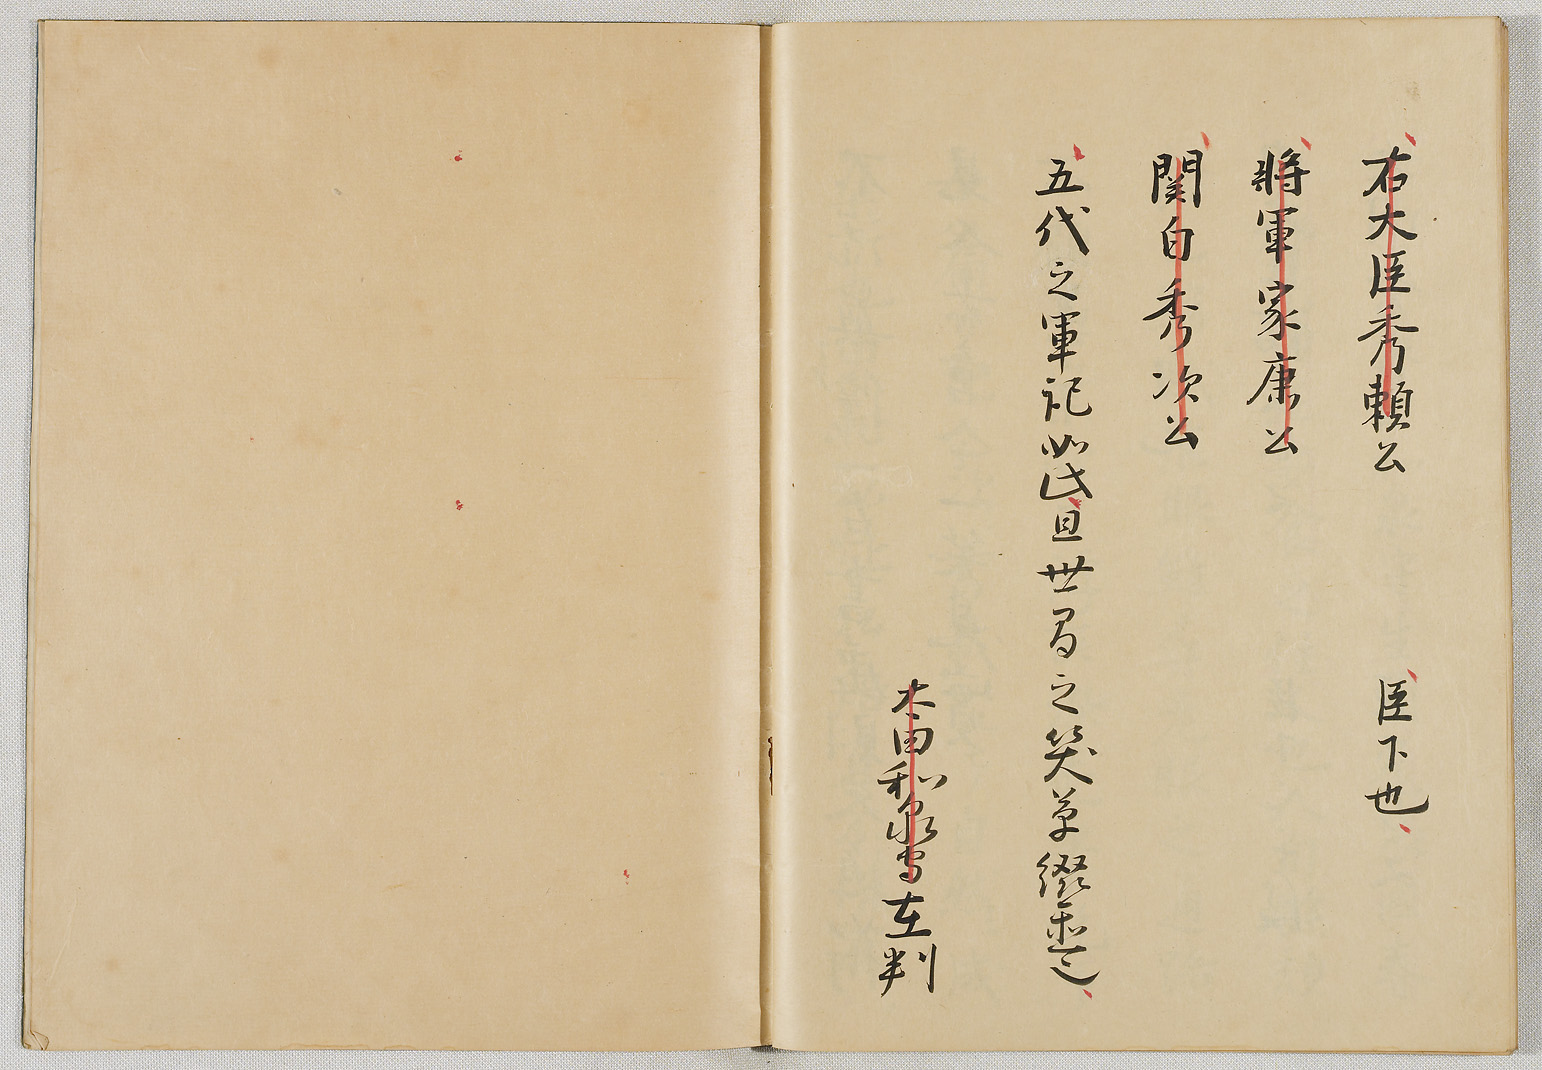 右大臣秀頼公 臣下也
將軍家康公
関白秀次公
五代之軍記如此且世間之笑草綴置之
太田和泉守在判